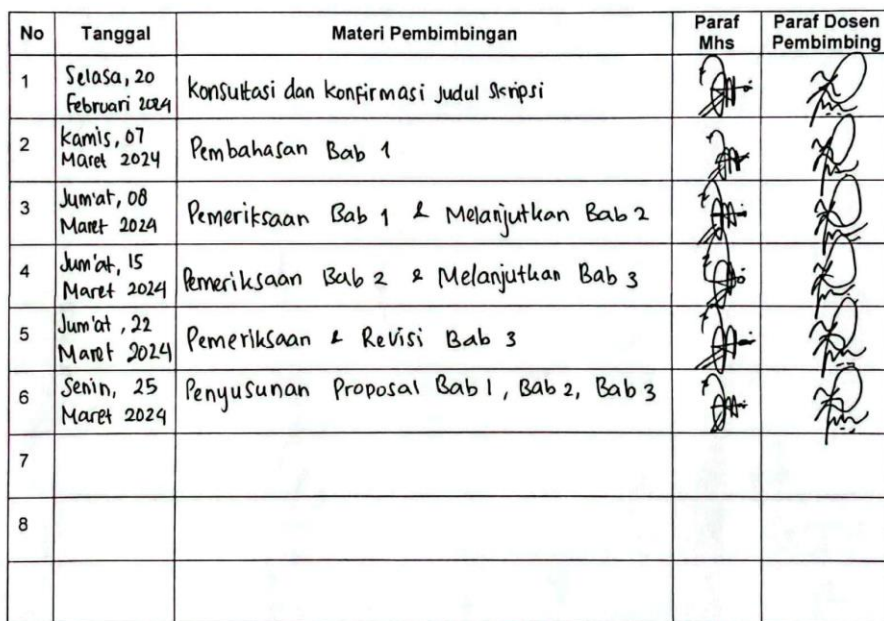 No Tanggal Materi Pembimbingan Paraf Mhs Paraf Dosen Pembimbing
1 Selasa, 20 Februari 2024 Konsultasi dan Konfirmasi Judul Skripsi
2 Kamis, 07 Maret 2024 Pembahasan Bab 1
3 Jum'at, 08 Maret 2024 Pemeriksaan Bab 1 & Melanjutkan Bab 2
4 Jum'at, 15 Maret 2024 Pemeriksaan Bab 2 & Melanjutkan Bab 3
5 Jum'at, 22 Maret 2024 Pemeriksaan & Revisi Bab 3
6 Senin, 25 Maret 2024 Penyusunan Proposal Bab 1, Bab 2, Bab 3
7
8